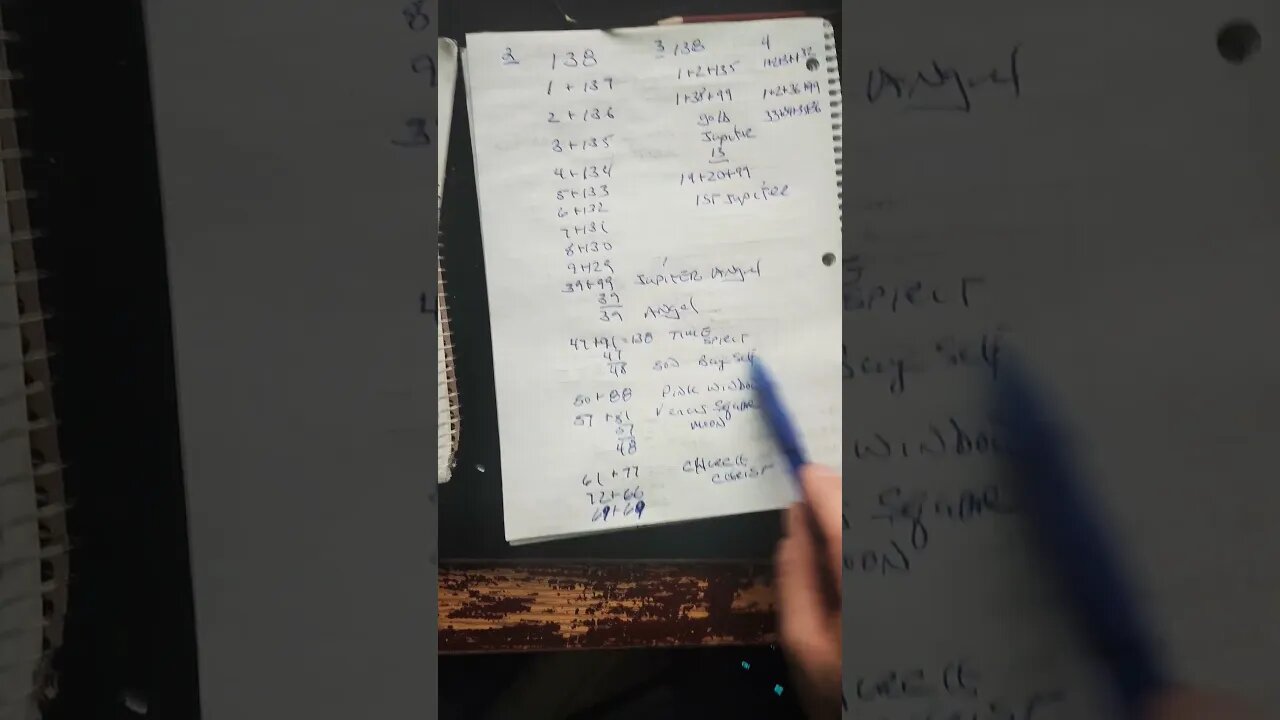 2 138
1 + 137
2 + 136
3 + 135
4 + 134
5 + 133
6 + 132
7 + 131
8 + 130
9 + 29
39 + 99 Jupiter Angel
39
39 Angel
47 + 91 = 138 Time Spirit
47
48 Son Bay Self
50 + 88 Pink Window
57 + 81 Venus Square
57 Moon
48
61 + 77 Church
72 + 66 Christ
69 + 69
3 138
1 + 2 + 135
1 + 38 + 99
gold
Jupiter
13
19 + 20 + 99
1st Jupiter
4
1+2+3+132
1+2+36+99
Angel
Spirit
Bay Self
Window
Square